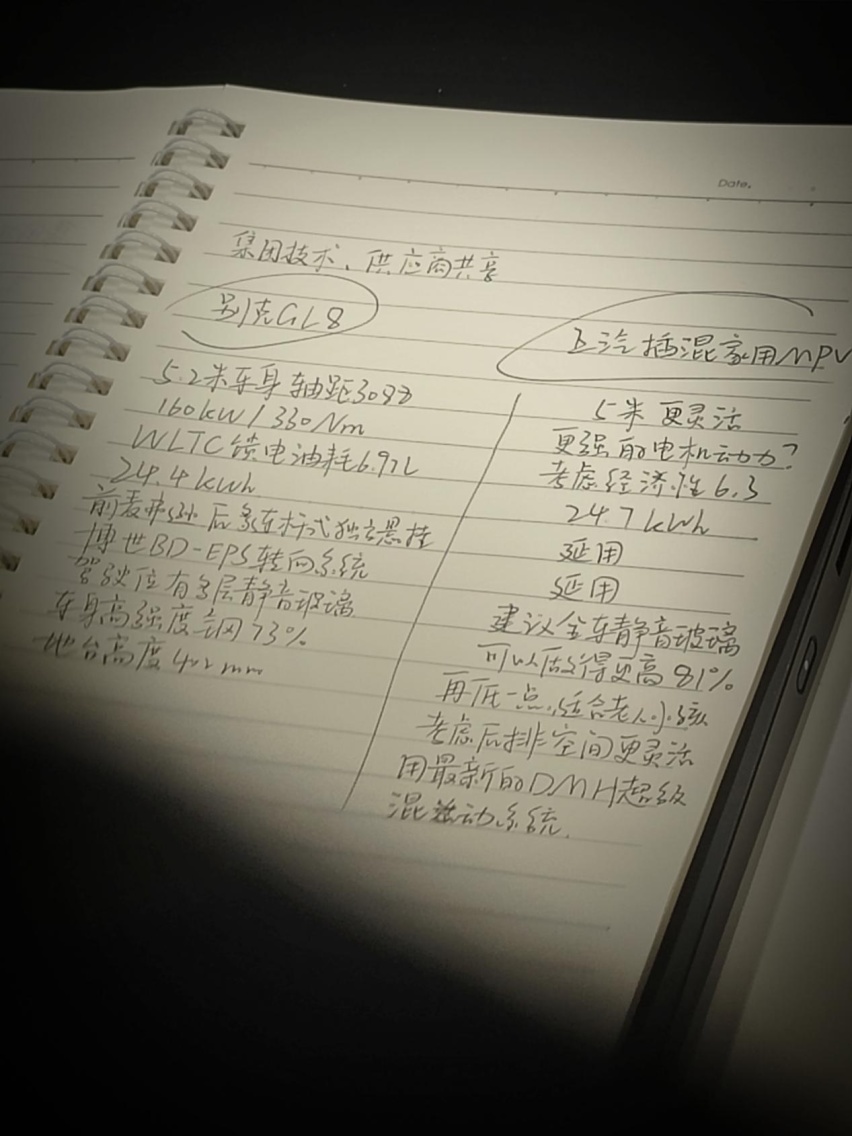 Date.
集团技术、供应商共享
别克GL8
5.2米车身 轴距308
160kW/330Nm
WLTC馈电油耗6.97L
24.4kWh
前麦弗逊 后多连杆式独立悬挂
博世BD-EPS转向系统
驾驶位有多层静音玻璃
车身高强度钢73%
地台高度402mm
上汽插混家用MPV
5米 更灵活
更强的电机动力?
考虑经济性6.3
24.7kWh
延用
延用
建议全车静音玻璃
可以做得更高81%
再低一点,适合老人小孩
考虑后排空间更灵活
用最新的DMH超级
混动系统.